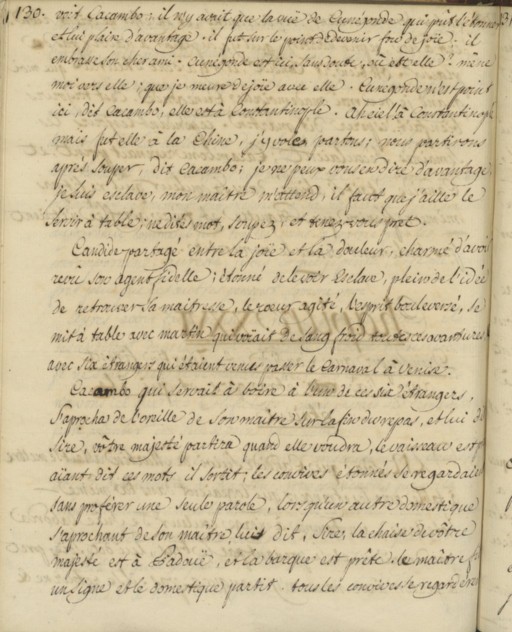 130.
voit Cacambo; il n'y avait que la vuë de Cunégonde qui pût l'étonner
et lui plaire d'avantage. il fut sur le point de devenir fou de joïe. il
embrasse son cher ami. Cunégonde est ici sans doute, où est elle? mène
moi vers elle; que je meure de joïe avec elle. Cunegonde n'est point
ici, dit Cacambo; elle est à Constantinople. Ah ciel! à Constantinople
mais fut elle à la Chine, j'y vole, partons; nous partirons
après souper, dit Cacambo; je ne peux vous en dire d'avantage
je suis esclave, mon maître m'attend, il faut que j'aille le
servir à table; ne dites mot, soupez, et tenez vous prêt.
Candide partagé entre la joïe et la douleur, charmé d'avoir
revu son agent fidelle; étonné de le voir Esclave, plein de l'idée
de retrouver sa maitresse, le coeur agité l'esprit bouleversé, se
mit à table avec martin qui voïait de sang froid toutes ces avantures
avec six étrangers qui étaient venus passer le Carnaval à Venise.
Cacambo qui servait à boire à l'un de ces six étrangers,
s'aprocha de l'oreille de son maître sur la fin du repas, et lui dit
Sire, vôtre majesté partira quand elle voudra, le vaisseau est
aïant dit ces mots il sortit; les convives étonnés se regardaient
sans proferer une seule parole, lorsqu'un autre domestique
s'aprochant de son maître lui dit, Sire, la chaise de vôtre
majesté est à Padouë, et la barque est prête. le maître fit
un signe et le domestique partit. tous les convives se regardèrent